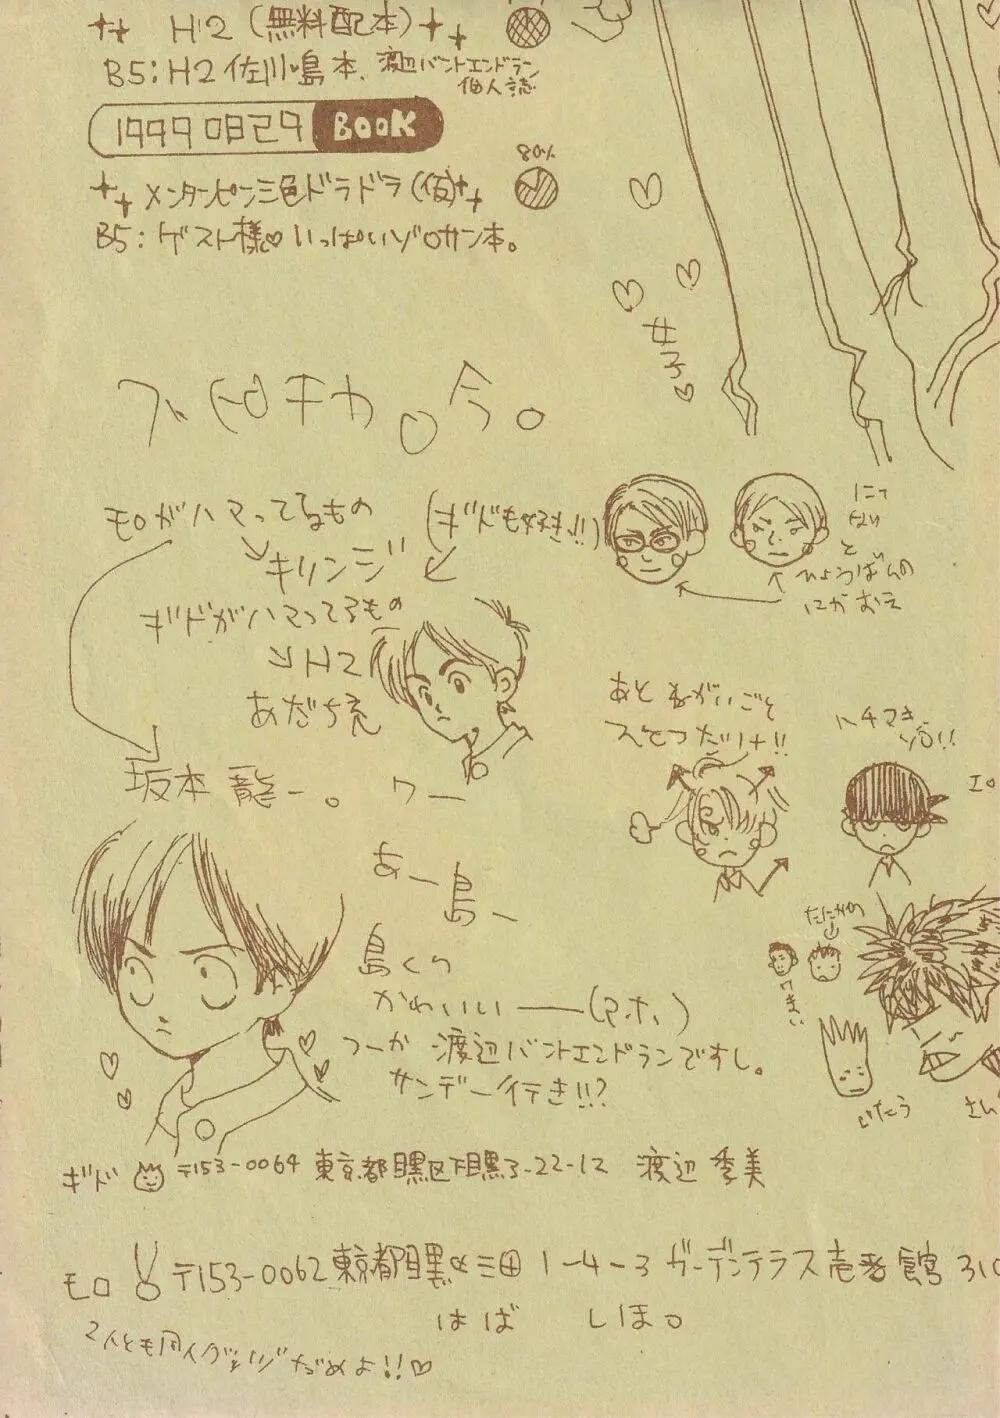 H2(無料配本)
B5:H2佐川・島本、渡辺バントエンドラン
個人誌
19990829 BOOK
80%
メンタンピン三色ドラドラ(仮)
B5:ゲスト様♡いっぱいゾロサン本。
女子♡
今。
モロがハマってるもの
(ギドも好き!!)
キリンジ
にて
ない
と
ひょうばんの
にがおえ
ギドがハマってるもの
H2
あだち充
坂本龍一。
あと ねがいごと
ハチマキ
ゾロ!!
あー島ー
島くん
かわいいー(アホ)
つーか 渡辺バントエンドランですし。
サンデー行き!!?
ギド 〒153-0064 東京都目黒区下目黒3-22-12 渡辺 季美
モロ 〒153-0062 東京都目黒区三田1-4-3 ガーデンテラス壱番館310
はば しほ。
2人とも同人グッズ だめよ!!♡